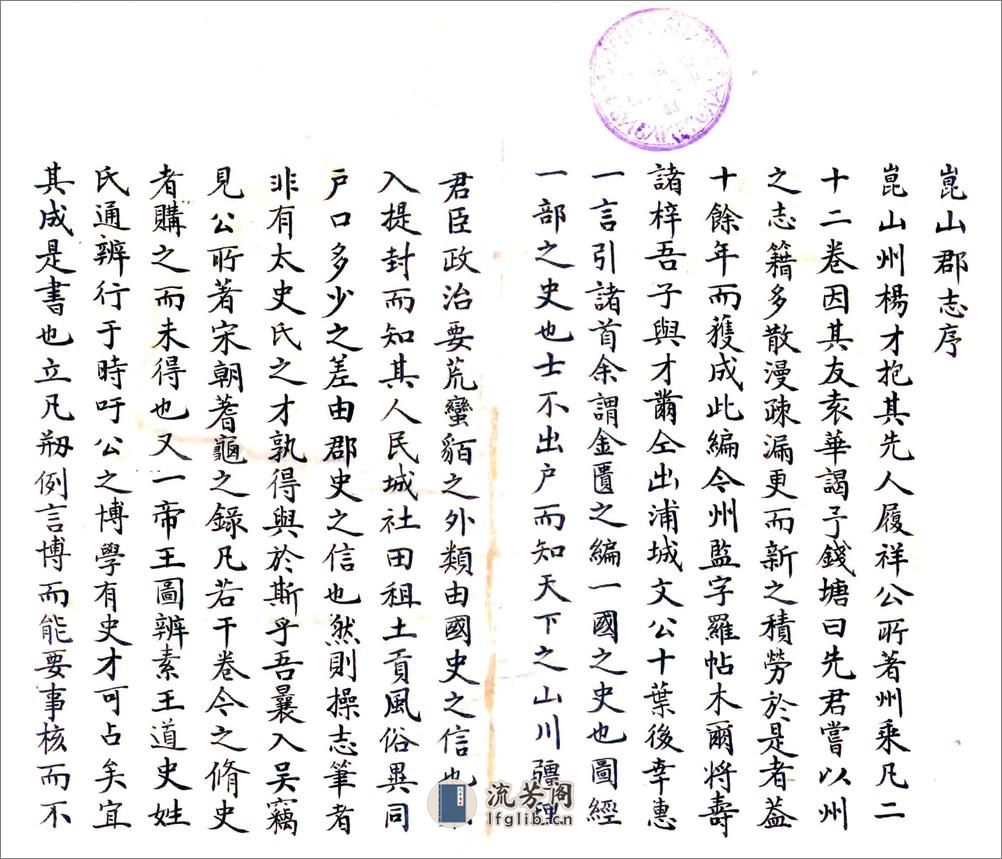 崑山郡志序
崑山州楊才抱其先人履祥公所著州乘凡二
十二卷因其友袁華謁予錢塘曰先君嘗以州
之志籍多散漫疎漏更而新之積勞於是者葢
十餘年而獲成此編今州監孛羅帖木爾將壽
諸梓吾子與才爾仝出浦城文公十葉後幸惠
一言引諸首余謂金匱之編一國之史也圖經
一部之史也士不出户而知天下之山川疆理
君臣政治要荒蠻貊之外類由國史之信也
入提封而知其人民城社田租土貢風俗異同
戶口多少之差由郡史之信也然則操志筆者
非有太史氏之才孰得與於斯乎吾曩入吴竊
見公所著宋朝蓍龜之錄凡若干卷今之脩史
者購之而未得也又一帝王圖辨素王道史姓
氏通辨行于時吁公之博學有史才可占矣宜
其成是書也立凡刱例言博而能要事核而不
流芳阁
lfglib.cn